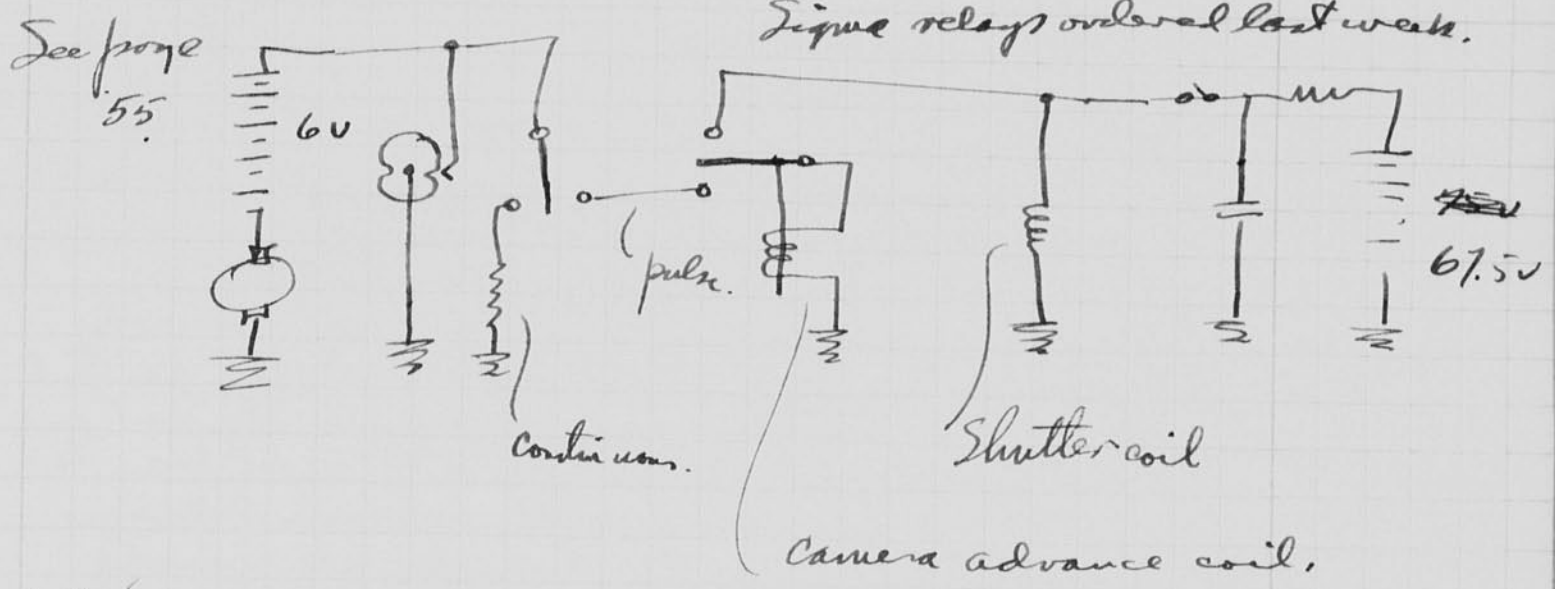 Sigma relays ordered last week.
See page
55.
6v
67.5v
pulse.
continuous.
Shutter coil
Camera advance coil.